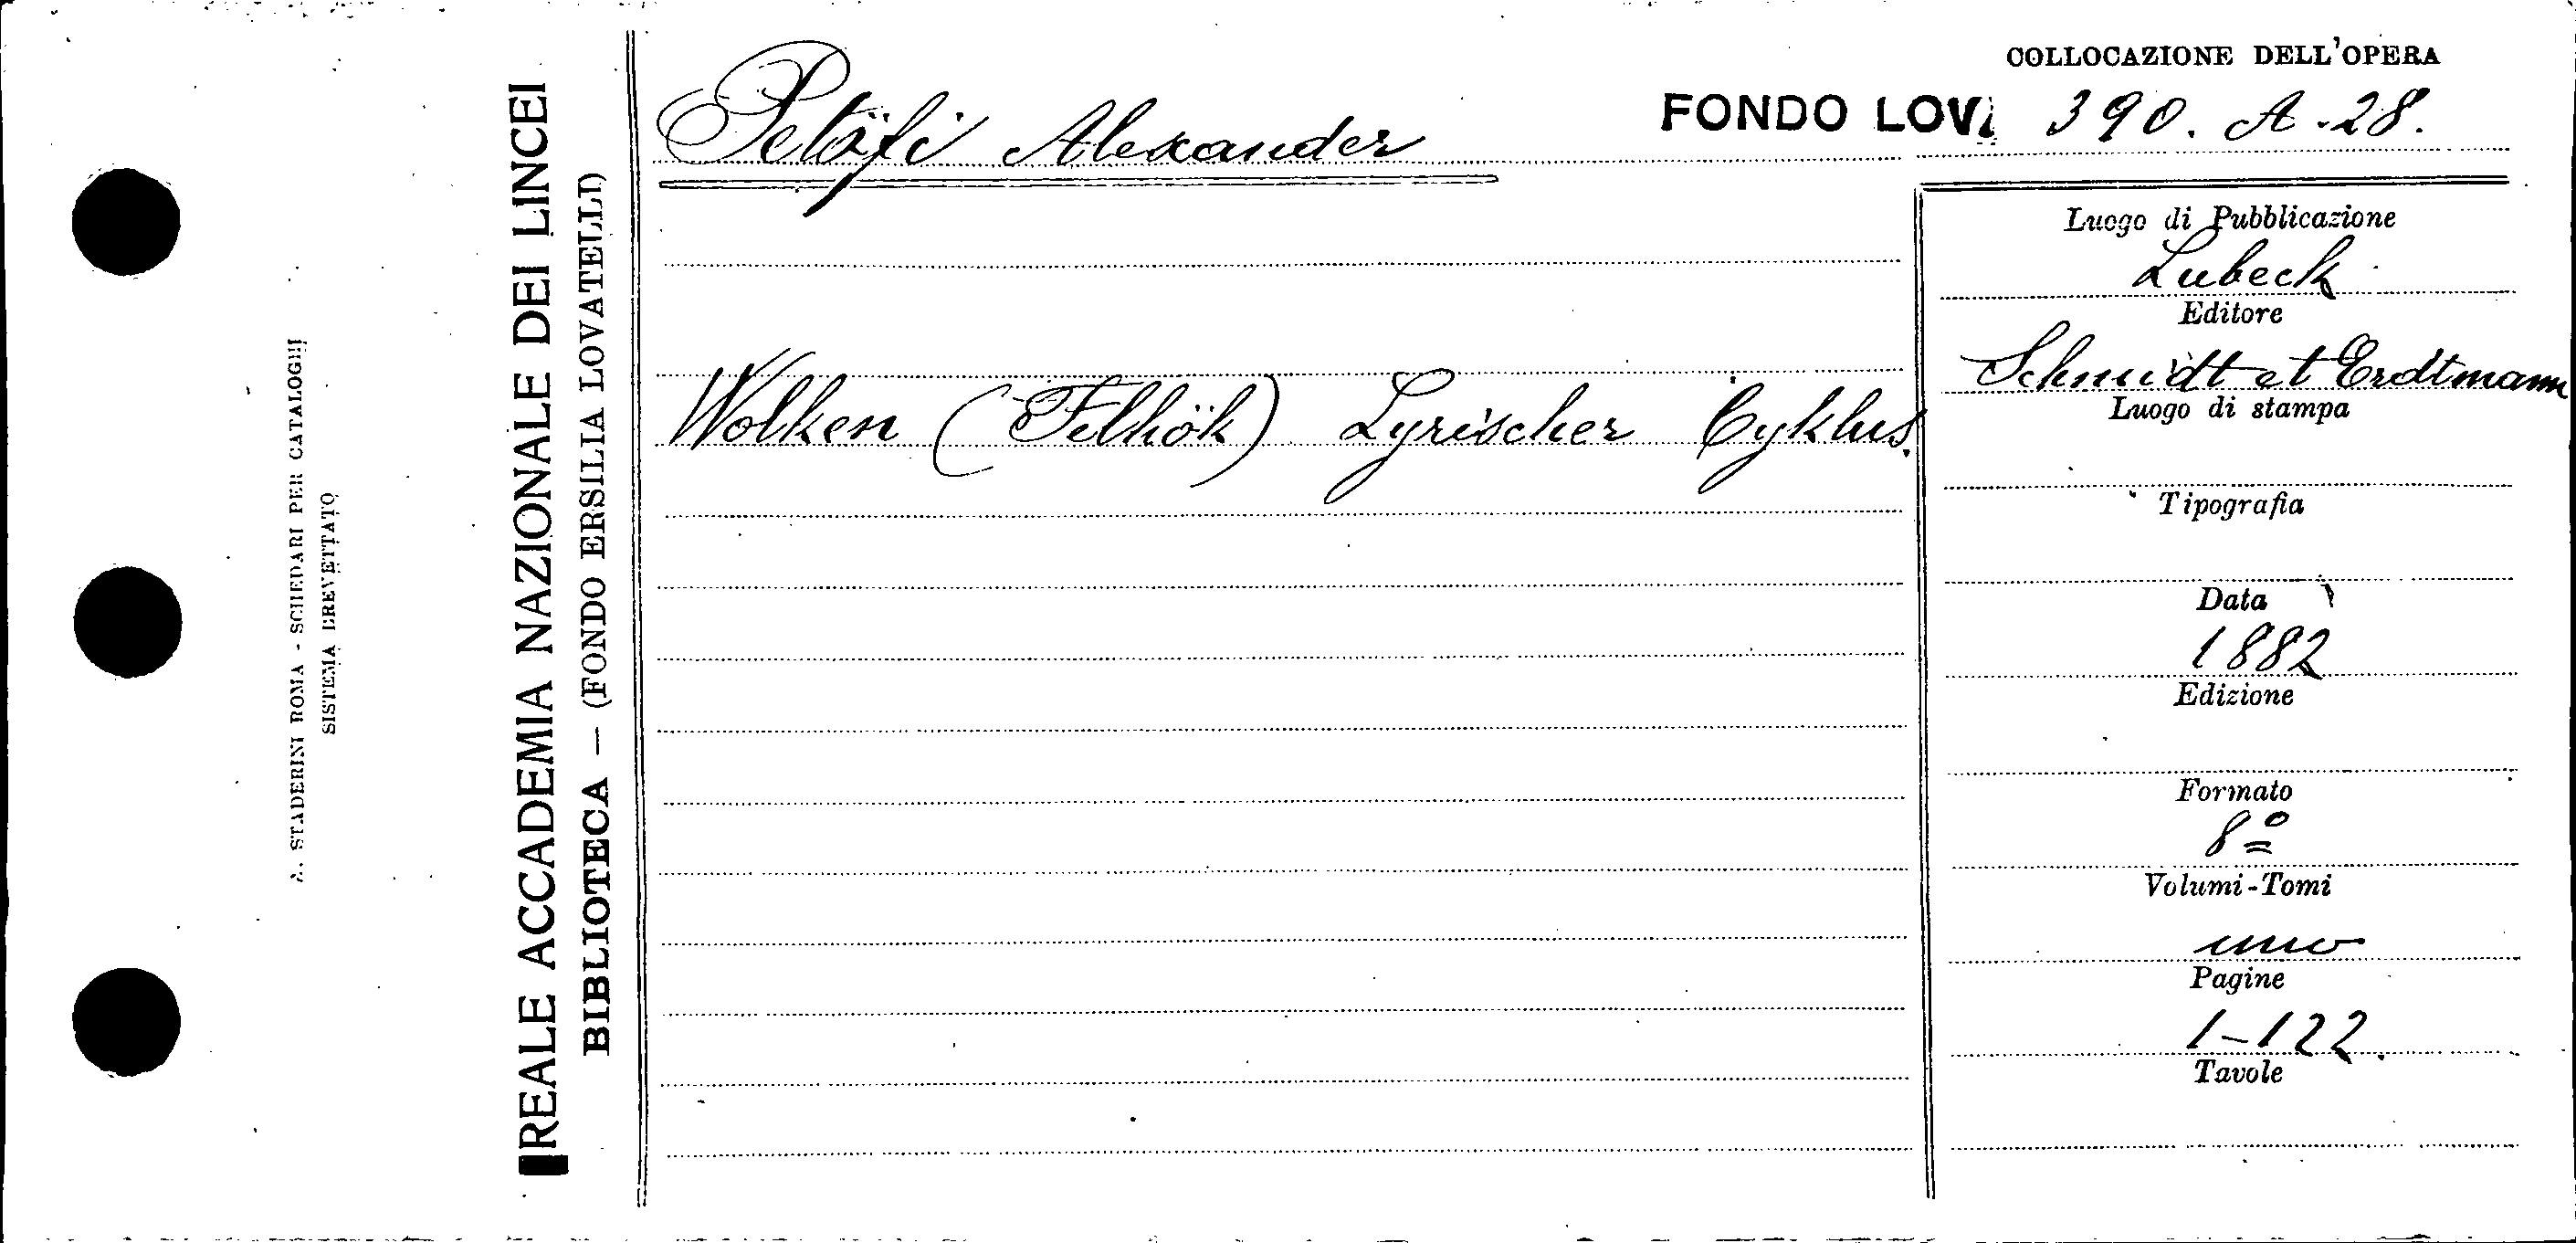 A. STADERINI ROMA - SCHEDARI PER CATALOGHI
SISTEMA BREVETTATO
REALE ACCADEMIA NAZIONALE DEI LINCEI
BIBLIOTECA — (FONDO ERSILIA LOVATELLI)
Petöfi Alexander
Wolken (Felhök) Lyrischer Cyklus.
COLLOCAZIONE DELL'OPERA
FONDO LOV. 390. A. 28.
Luogo di Pubblicazione
Lubeck
Editore
Schmidt et Erdtmann
Luogo di stampa
Tipografia
Data
1882
Edizione
Formato
8º
Volumi-Tomi
uno
Pagine
1-122.
Tavole